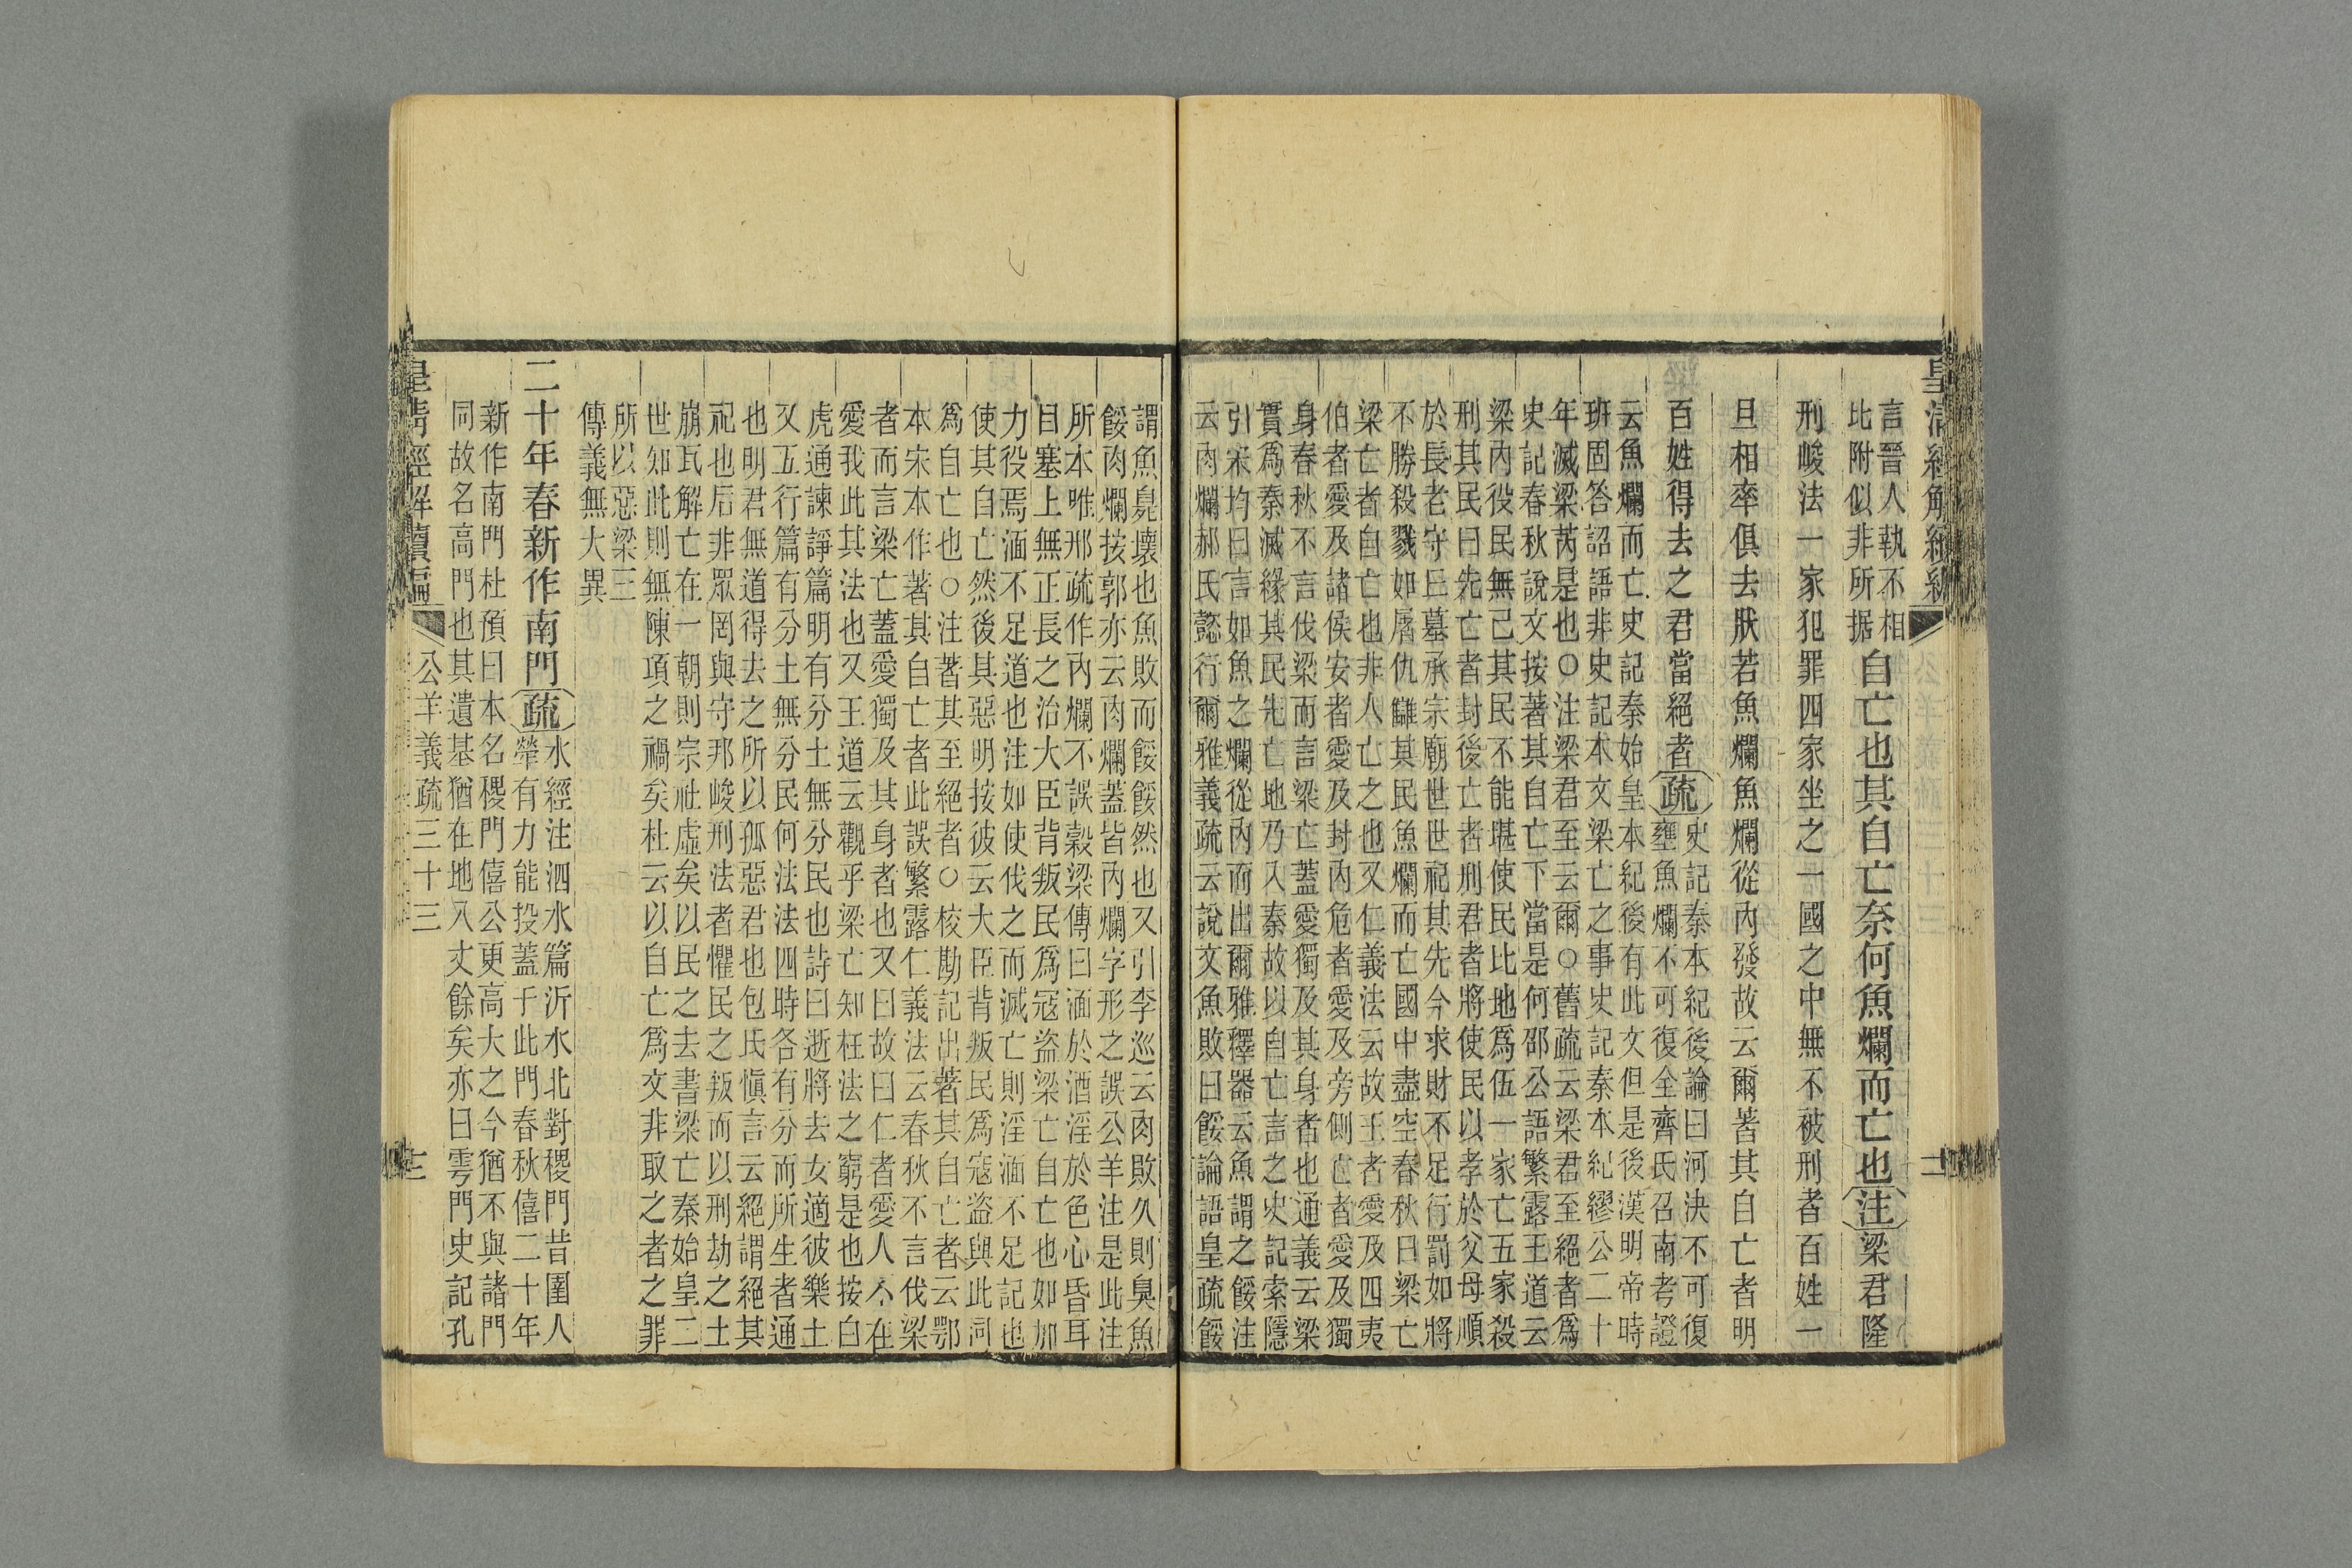 皇清經解續編
二
言晉人執不相
比附似非所据
自亡也其自亡奈何魚爛而亡也注梁君隆
刑峻法一家犯罪四家坐之一國之中無不被刑者百姓一
旦相率俱去狀若魚爛魚爛從內發故云爾著其自亡者明
百姓得去之君當絕者疏
史記秦本紀後論曰河決不可復
壅魚爛不可復全齊氏召南考證
云魚爛而亡史記秦始皇本紀後有此文但是後漢明帝時
班固答詔語非史記本文梁亡之事史記秦本紀繆公二十
年滅梁芮是也○注梁君至云爾○舊疏云梁君至絕者爲
史記春秋說文按著其自亡下當是何邵公語繁露王道云
梁內役民無已其民不能堪使民比地爲伍一家亡五家殺
刑其民曰先亡者封後亡者刑君者將使民以孝於父母順
於長老守丘墓承宗廟世世祀其先今求財不足行罰如將
不勝殺戮如屠仇讎其民魚爛而亡國中盡空春秋曰梁亡
梁亡者自亡也非人亡之也又仁義法云故王者愛及四夷
伯者愛及諸侯安者愛及封內危者愛及旁側亡者愛及獨
身春秋不言伐梁而言梁亡蓋愛獨及其身者也通義云梁
實爲秦滅緣其民先亡地乃入秦故以自亡言之史記索隱
引宋均曰言如魚之爛從內而出爾雅釋器云魚謂之餒注
云肉爛郝氏懿行爾雅義疏云說文魚敗曰餒論語皇疏餒
謂魚臭壞也魚敗而餒餒然也又引李巡云肉敗久則臭魚
餒肉爛按郭亦云肉爛蓋皆內爛字形之誤公羊注是此注
所本唯邢疏作內爛不誤穀梁傳曰湎於酒淫於色心昏耳
目塞上無正長之治大臣背叛民爲寇盜梁亡自亡也如加
力役焉湎不足道也注如使伐之而滅亡則淫湎不足記也
使其自亡然後其惡明按彼云大臣背叛民爲寇盜與此同
爲自亡也○注著其至絕者○校勘記出著其自亡者云鄂
本宋本作著其自亡者此誤繁露仁義法云春秋不言伐梁
者而言梁亡蓋愛獨及其身者也又曰故曰仁者愛人不在
愛我此其法也又王道云觀乎梁亡知枉法之窮是也按白
虎通諫諍篇明有分土無分民也詩曰逝將去女適彼樂土
又五行篇有分土無分民何法法四時各有分而所生者通
也明君無道得去之所以孤惡君也包氏愼言云絕謂絕其
祀也后非眾罔與守邦峻刑法者懼民之叛而以刑劫之土
崩瓦解亡在一朝則宗社虛矣以民之去書梁亡秦始皇二
世知此則無陳項之禍矣杜云以自亡爲文非取之者之罪
所以惡梁三
傳義無大異
二十年春新作南門疏
水經注泗水篇沂水北對稷門昔圉人
犖有力能投蓋于此門春秋僖二十年
新作南門杜預曰本名稷門僖公更高大之今猶不與諸門
同故名高門也其遺基猶在地八丈餘矣亦曰雩門史記孔
皇清經解續編
公羊義疏三十三